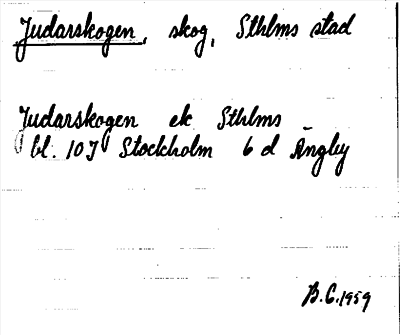 Judarskogen, skog, Sthlms stad
Judarskogen ek Sthlms
bl. 10J Stockholm 6 d Ängby
B.C. 1959